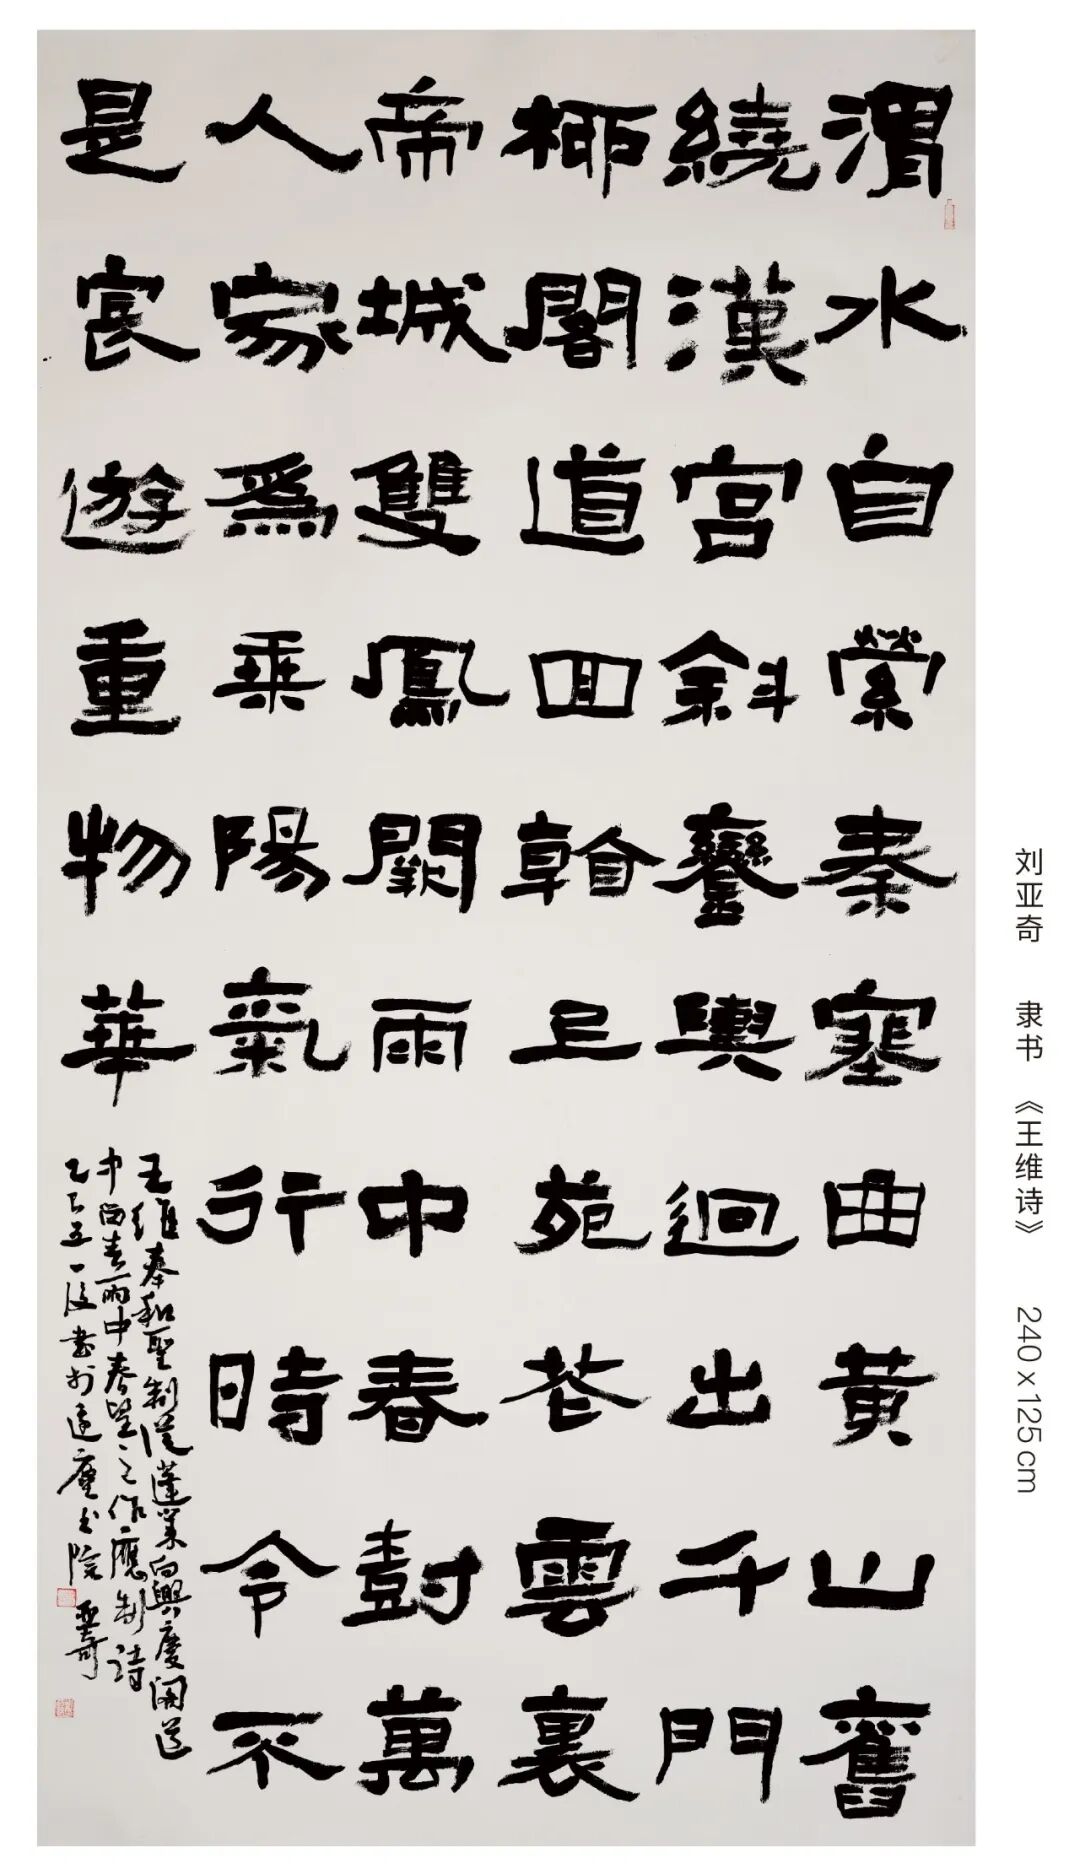 渭水自縈秦塞曲黄山舊
繞漢宮斜鑾輿迴出千門
柳閣道回看上苑花雲裏
帝城雙鳳闕雨中春樹萬
人家爲乘陽氣行時令不
是宸遊重物華
王維奉和聖制從蓬萊向興慶閣道
中留春雨中春望之作應制詩
乙巳五一後書於遠塵書院 亞奇
刘亚奇 隶书 《王维诗》 240×125cm